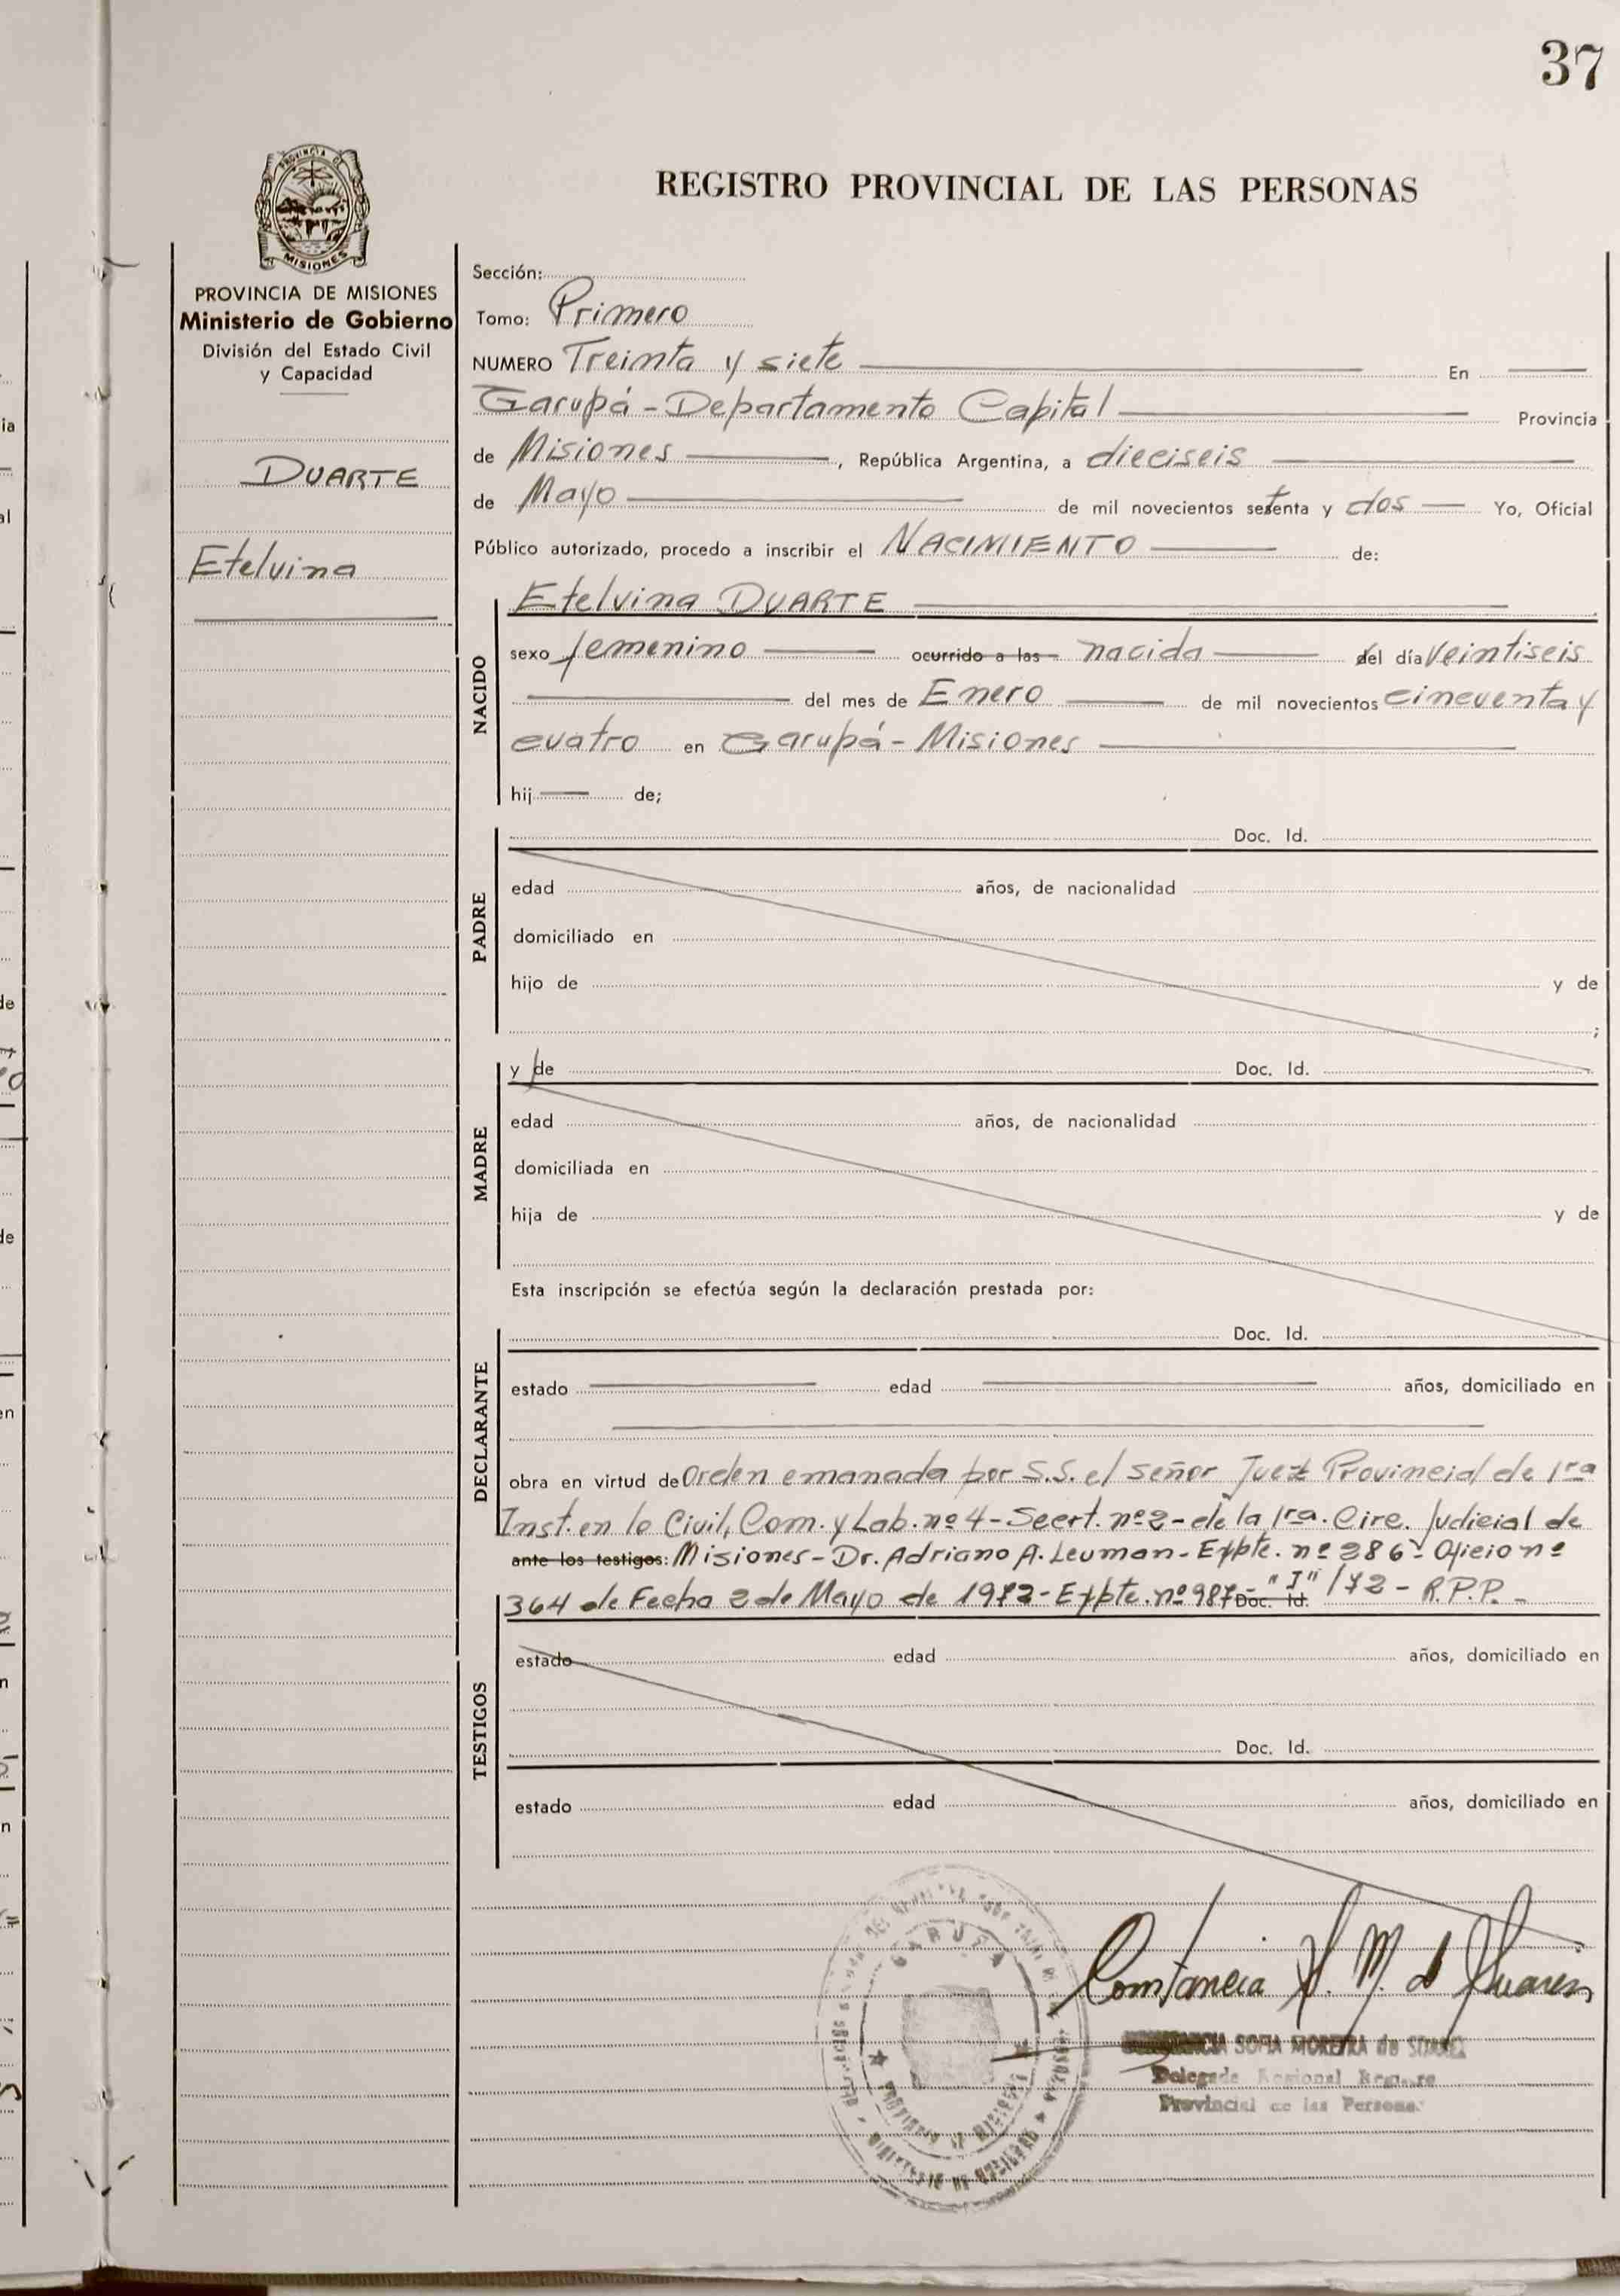 37
PROVINCIA DE
MISIONES
REGISTRO PROVINCIAL DE LAS PERSONAS
PROVINCIA DE MISIONES
Ministerio de Gobierno
División del Estado Civil
y Capacidad
DUARTE
Etelvina
Sección:
Tomo: Primero
NUMERO Treinta y siete En
Garupá - Departamento Capital Provincia
de Misiones, República Argentina, a dieciseis
de Mayo de mil novecientos setenta y dos Yo, Oficial
Público autorizado, procedo a inscribir el NACIMIENTO de:
NACIDO
Etelvina DUARTE
sexo femenino ocurrido a las nacida del día Veintiseis
del mes de Enero de mil novecientos cincuenta y
cuatro en Garupá - Misiones
hij de;
PADRE
Doc. Id.
edad años, de nacionalidad
domiciliado en
hijo de y de
;
MADRE
y de Doc. Id.
edad años, de nacionalidad
domiciliada en
hija de y de
Esta inscripción se efectúa según la declaración prestada por:
DECLARANTE
Doc. Id.
estado edad años, domiciliado en
obra en virtud de Orden emanada por S.S. el Señor Juez Provincial de 1ra
Inst. en lo Civil, Com. y Lab. nº 4 - Secrt. nº 2 - de la 1ra. Circ. Judicial de
ante los testigos: Misiones - Dr. Adriano A. Leuman - Expte. nº 286 - Oficio nº
364 de Fecha 2 de Mayo de 1972 - Expte. nº 987 - Doc. Id. "I" /72 - R.P.P. -
TESTIGOS
estado edad años, domiciliado en
Doc. Id.
estado edad años, domiciliado en
GARUPA
PROVINCIA DE MISIONES
Constancia S. M. d Suarez
CONSTANCIA SOFIA MOREIRA de SUAREZ
Delegada Regional Registro
Provincial de las Personas